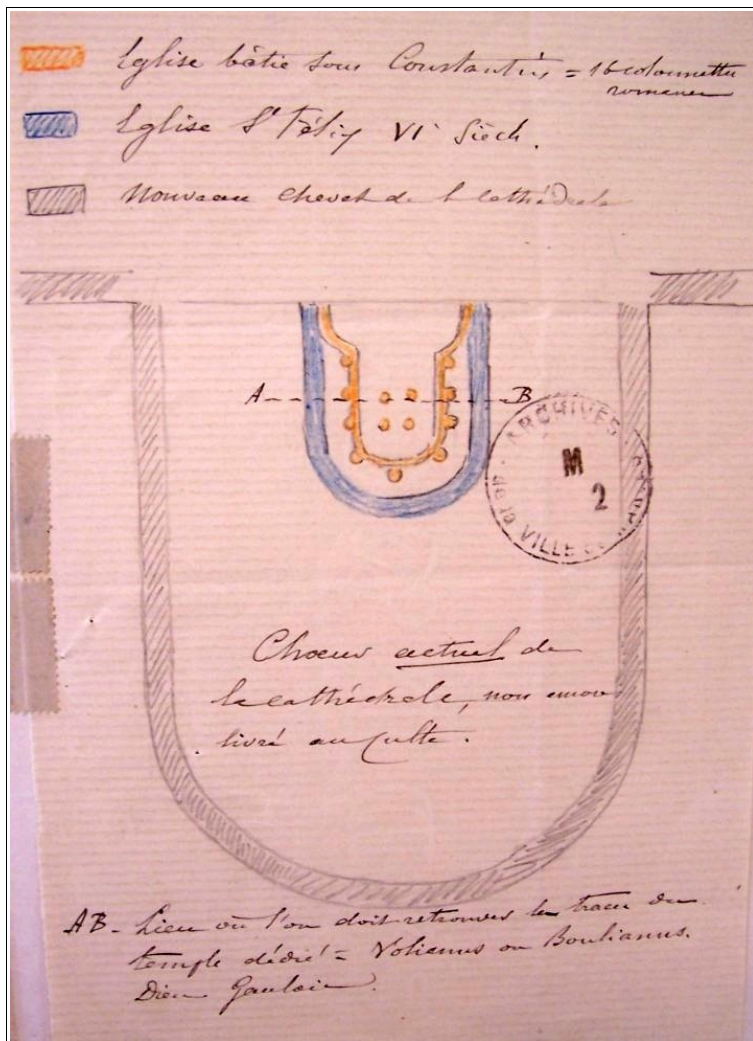 Eglise bâtie sous Constantin = 16 colonnettes
romanes
Eglise St Félix VIe Siècle.
Nouveau chevet de la cathédrale
A B
ARCHIVES
M
2
VILLE
Choeur actuel de
la cathédrale, non encore
livré au Culte.
AB - Lieu où l'on doit retrouver les traces du
temple dédié = Volianus ou Boulianus.
Dieu Gaulois.